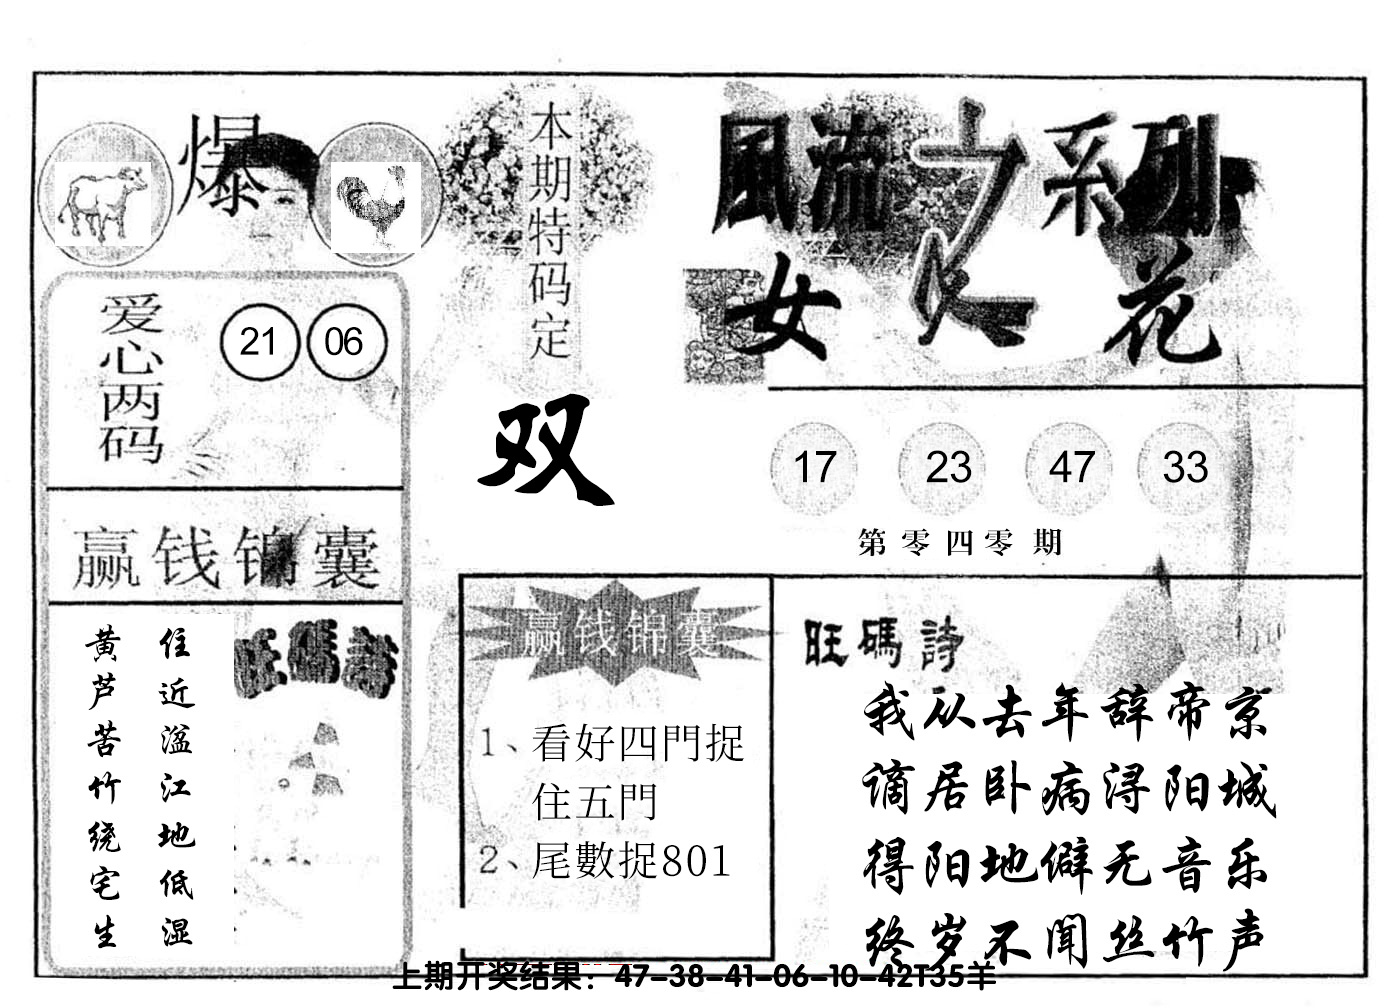 爆
本期特码定
双
風流之系列
女人花
爱心两码
21 06
17 23 47 33
第零四零期
赢钱锦囊
住近湓江地低湿
黄芦苦竹绕宅生
旺碼詩
赢钱锦囊
1、看好四門捉
住五門
2、尾數捉801
旺碼詩
我从去年辞帝京
谪居卧病浔阳城
得阳地僻无音乐
终岁不闻丝竹声
上期开奖结果：47-38-41-06-10-42T35羊